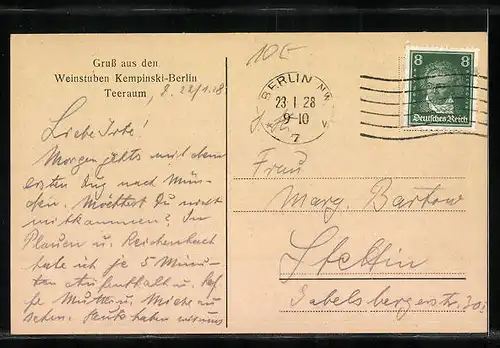 Gruß aus den
Weinstuben Kempinski-Berlin
Teeraum, 22/1.28
Morgen geht's mit dem
ersten Zug nach Mün-
chen. Möchtest Du nicht
mitkommen? In
Plauen u. Reichenbach
habe ich je 5 Minu-
ten Aufenthalt u. hof-
fe Mutter u. zu
sehen. Heute haben wir uns
10E
BERLIN NW
23 1 28
9-10
V
*
7
8 8
Deutsches Reich
Frau
Marg. Bartow
Stettin
Gabelsbergerstr.